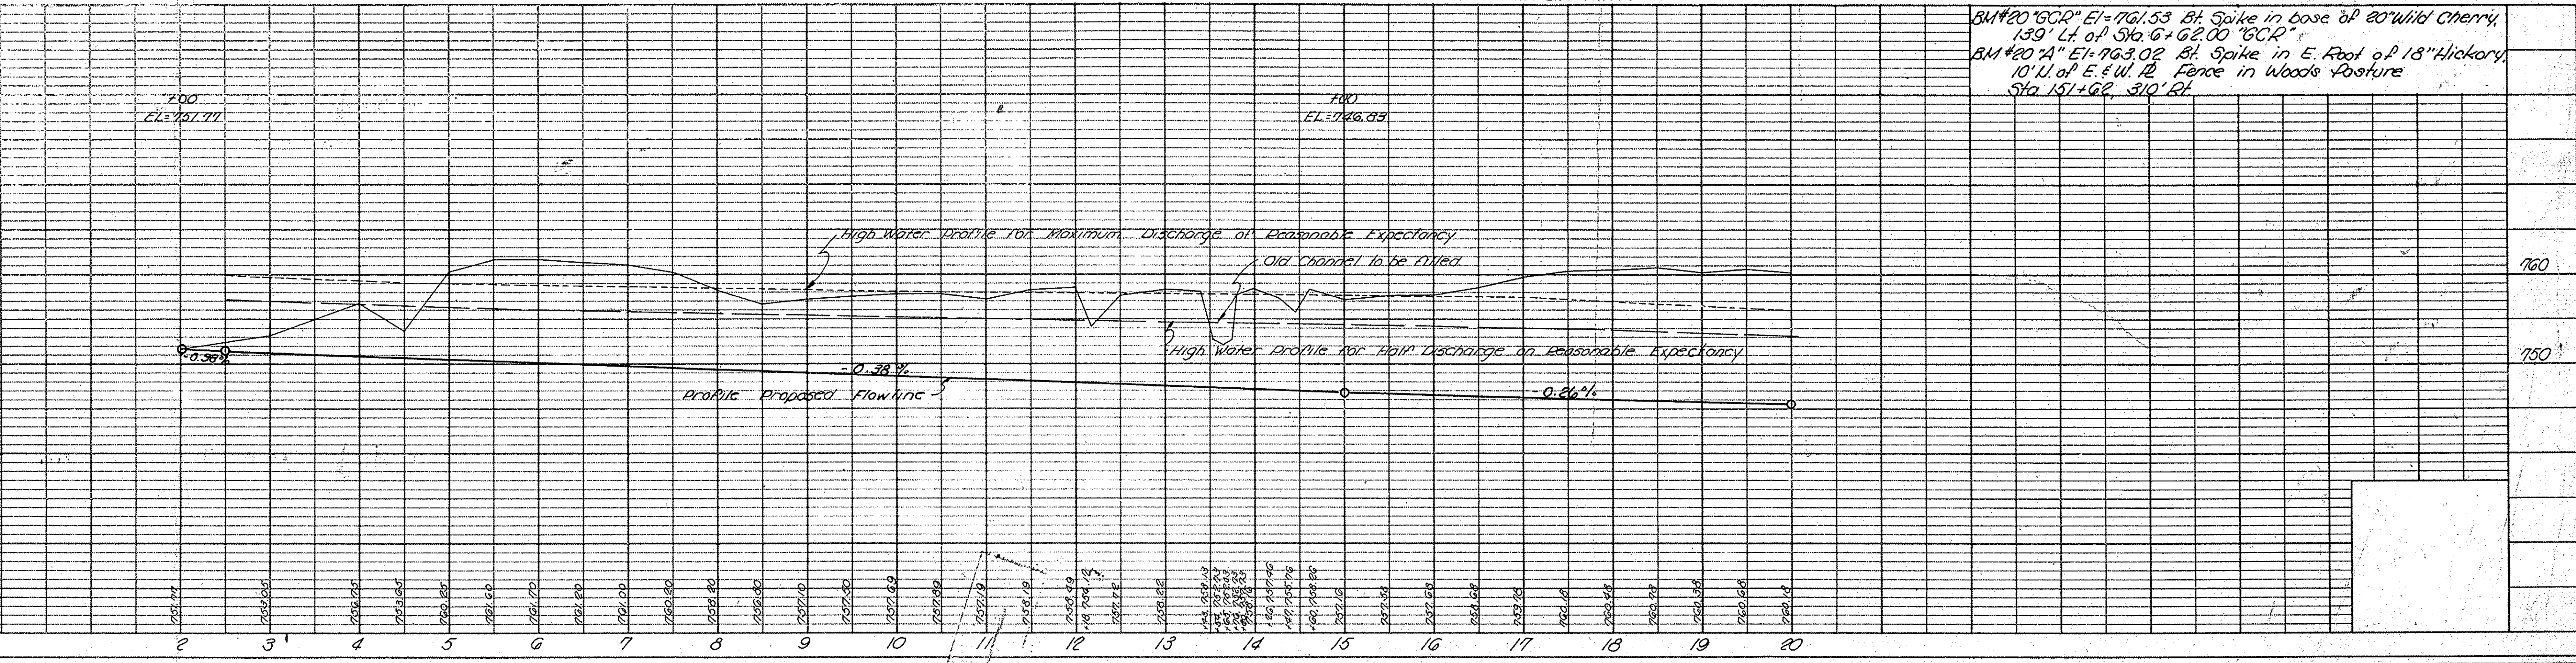 BM#20 "GCR" El=761.53 Bt. Spike in base of 20" Wild Cherry,
139' Lt. of Sta. 6+62.00 "GCR"
BM#20 "A" El=763.02 Bt. Spike in E. Root of 18" Hickory,
10' N. of E. & W. PL Fence in Woods Pasture
Sta 151+62, 310' Rt.
+00
EL=751.77
+00
EL=746.83
High Water Profile for Maximum Discharge of Reasonable Expectancy
Old Channel to be filled
760
High Water Profile for Half Discharge on Reasonable Expectancy
750
-0.38%
-0.38%
-0.26%
Profile Proposed Flowline
751.77
753.05
756.75
753.65
760.25
761.60
761.70
761.20
761.00
760.20
758.20
756.80
757.10
757.50
757.69
757.89
757.19
758.19
758.49
+18 754.12
757.72
758.22
+26, 757.46
+47, 755.76
+60, 758.26
757.16
757.58
757.68
758.68
759.78
760.18
760.48
760.78
760.38
760.68
760.18
2 3 4 5 6 7 8 9 10 11 12 13 14 15 16 17 18 19 20